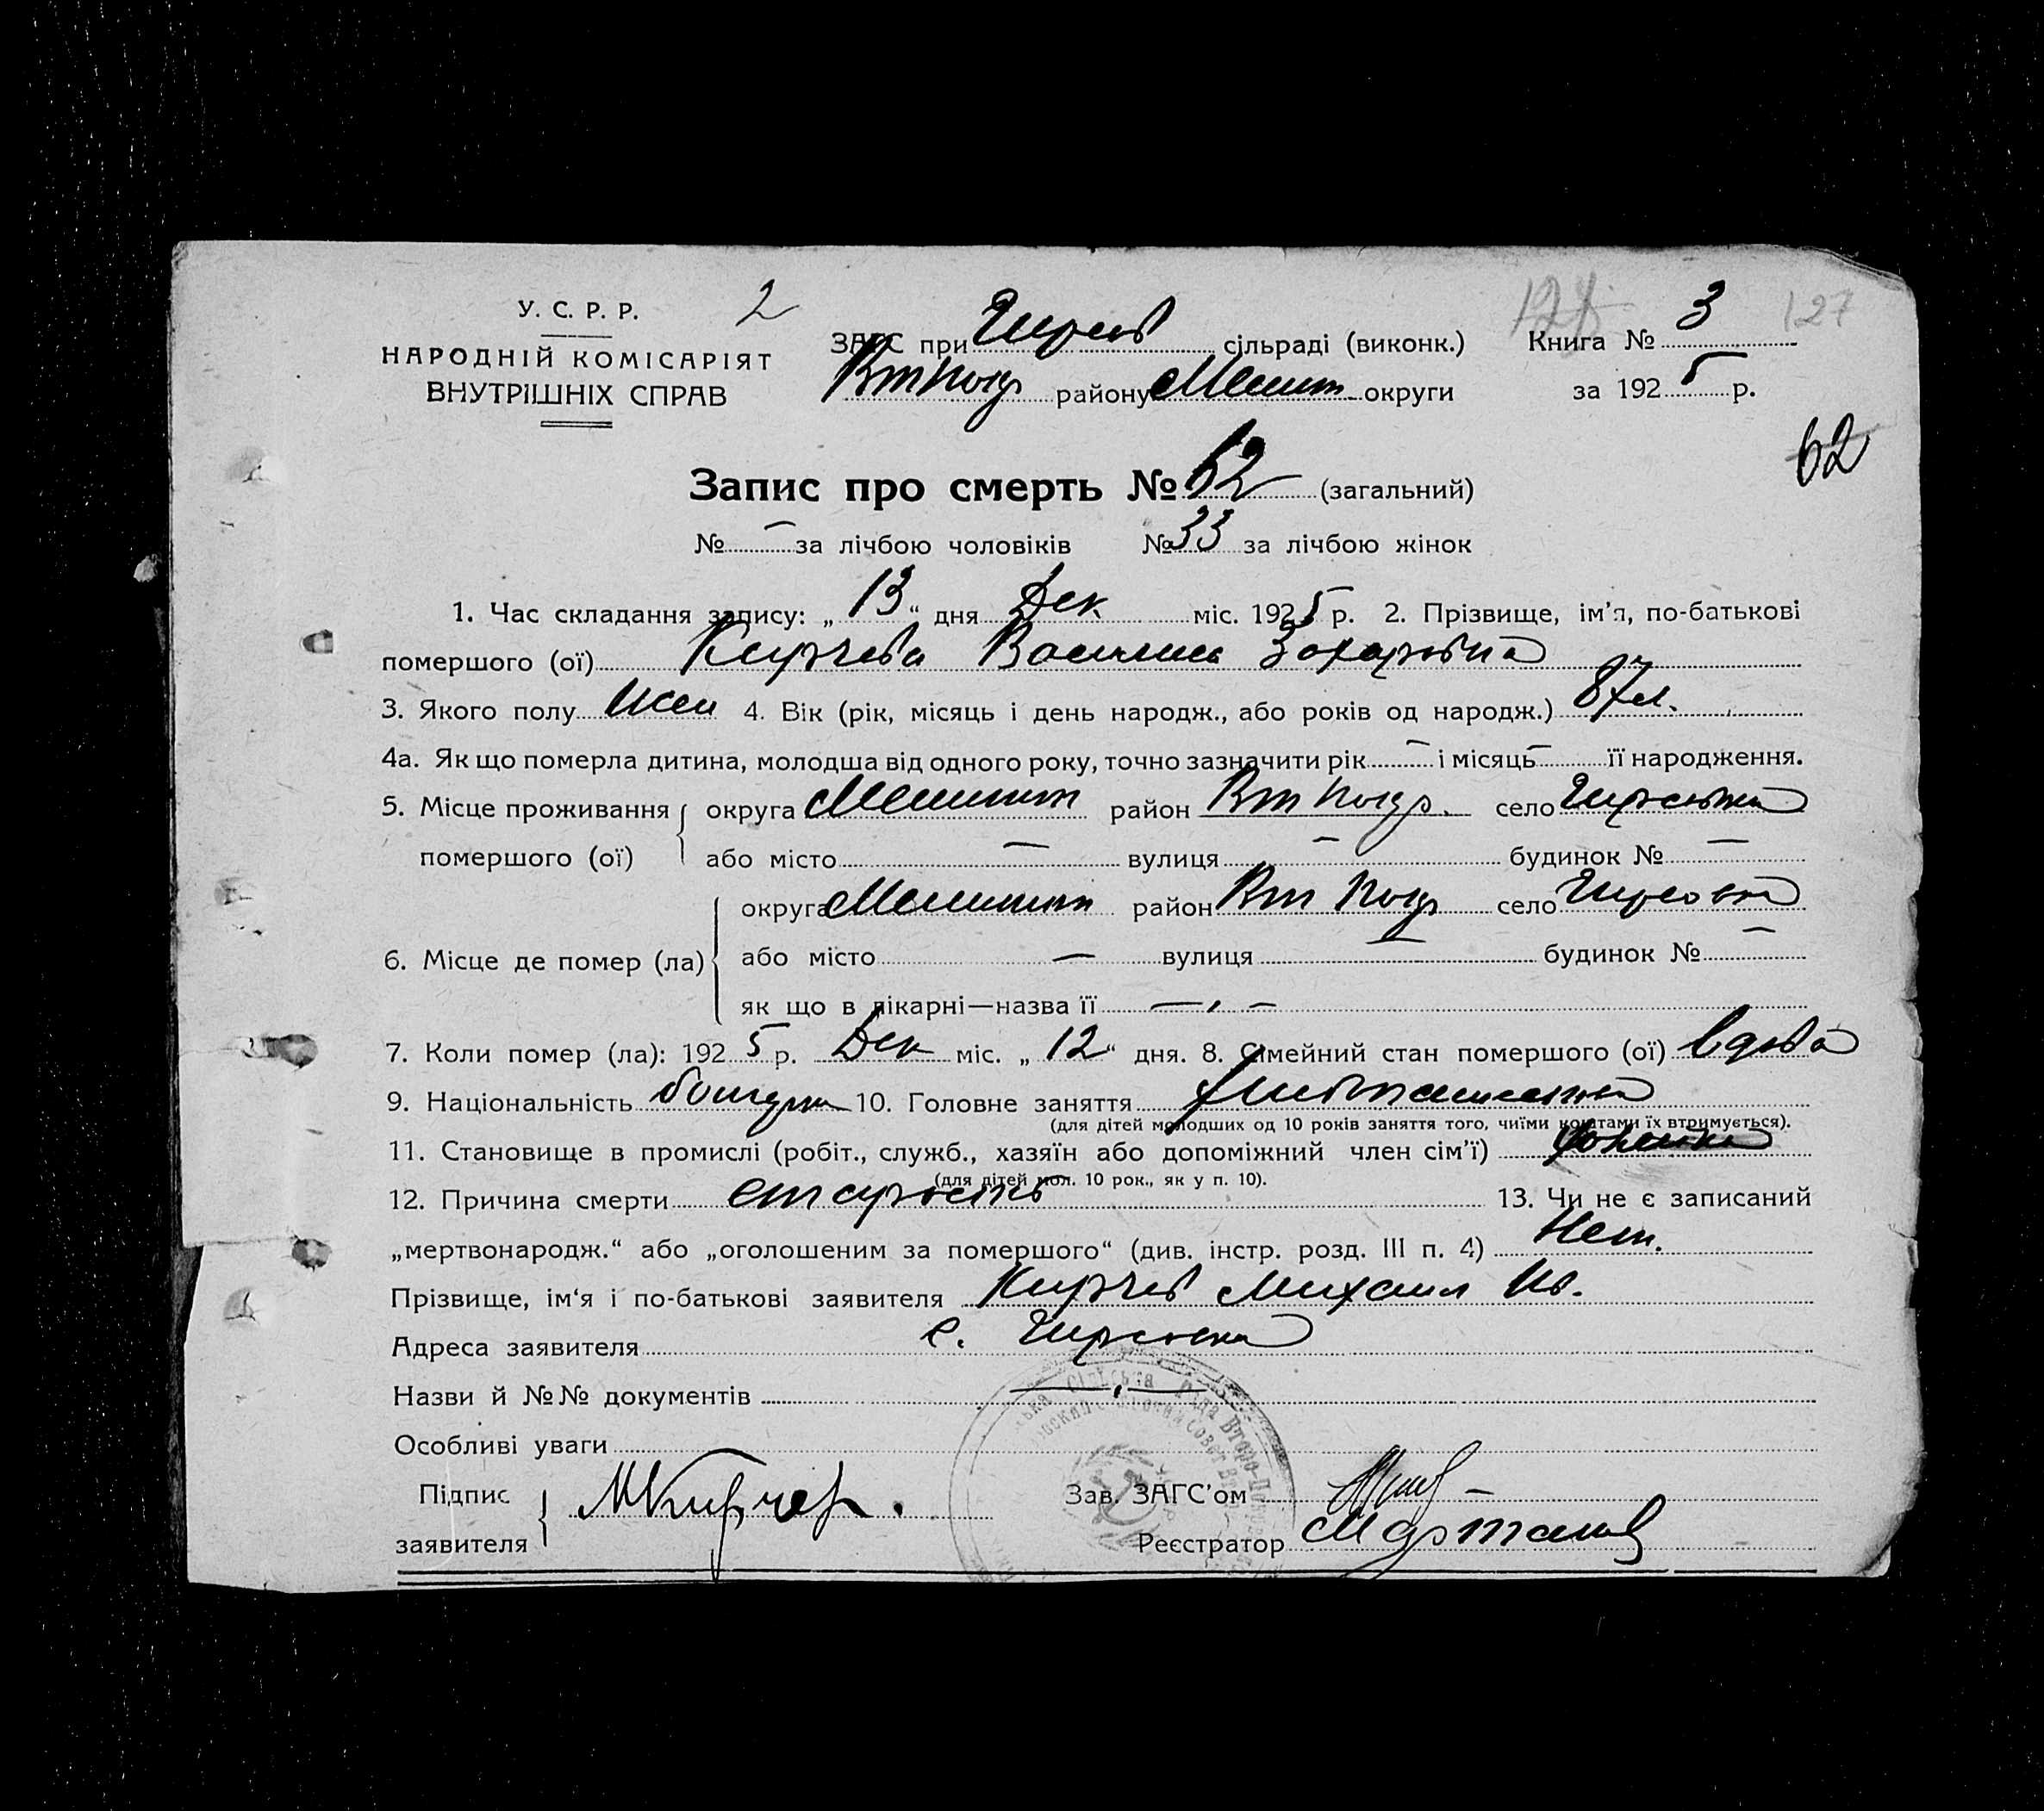 У. С. Р. Р.
НАРОДНІЙ КОМІСАРІЯТ
ВНУТРІШНІХ СПРАВ
2
ЗАГС при Гирсов сільраді (виконк.)
Вт Покр району Мелит округи
Книга № 3
127
за 1925 р.
62
Запис про смерть № 62 (загальний)
№ — за лічбою чоловіків № 33 за лічбою жінок
1. Час складання запису: „13“ дня Дек. міс. 1925 р. 2. Прізвище, ім'я, по-батькові
помершого (ої) Кирчева Василиса Захаровна
3. Якого полу жен 4. Вік (рік, місяць і день народж., або років од народж.) 87 л.
4а. Як що померла дитина, молодша від одного року, точно зазначити рік — і місяць — її народження.
5. Місце проживання округа Мелитоп район Вт Покр. село Гирсовка
помершого (ої) або місто — вулиця — будинок № —
округа Мелитоп район Вт Покр село Гирсовка
6. Місце де помер (ла) або місто — вулиця — будинок № —
як що в лікарні—назва її —„—
7. Коли помер (ла): 1925 р. Дек міс. „12“ дня. 8. Сімейний стан помершого (ої) вдова
9. Національність болгарка 10. Головне заняття
(для дітей молодших од 10 років заняття того, чиїми коштами їх втримується).
11. Становище в промислі (робіт., служб., хазяїн або допоміжний член сім'ї) хозяйка
(для дітей мол. 10 рок., як у п. 10).
12. Причина смерти старость 13. Чи не є записаний
„мертвонародж.“ або „оголошеним за помершого“ (див. інстр. розд. III п. 4) Нет.
Прізвище, ім'я і по-батькові заявителя Кирчев Михаил Ив.
Адреса заявителя с. Гирсовка
Назви й №№ документів —„—
Особливі уваги
Підпис заявителя М Кирчев.
Зав. ЗАГС'ом
Реєстратор